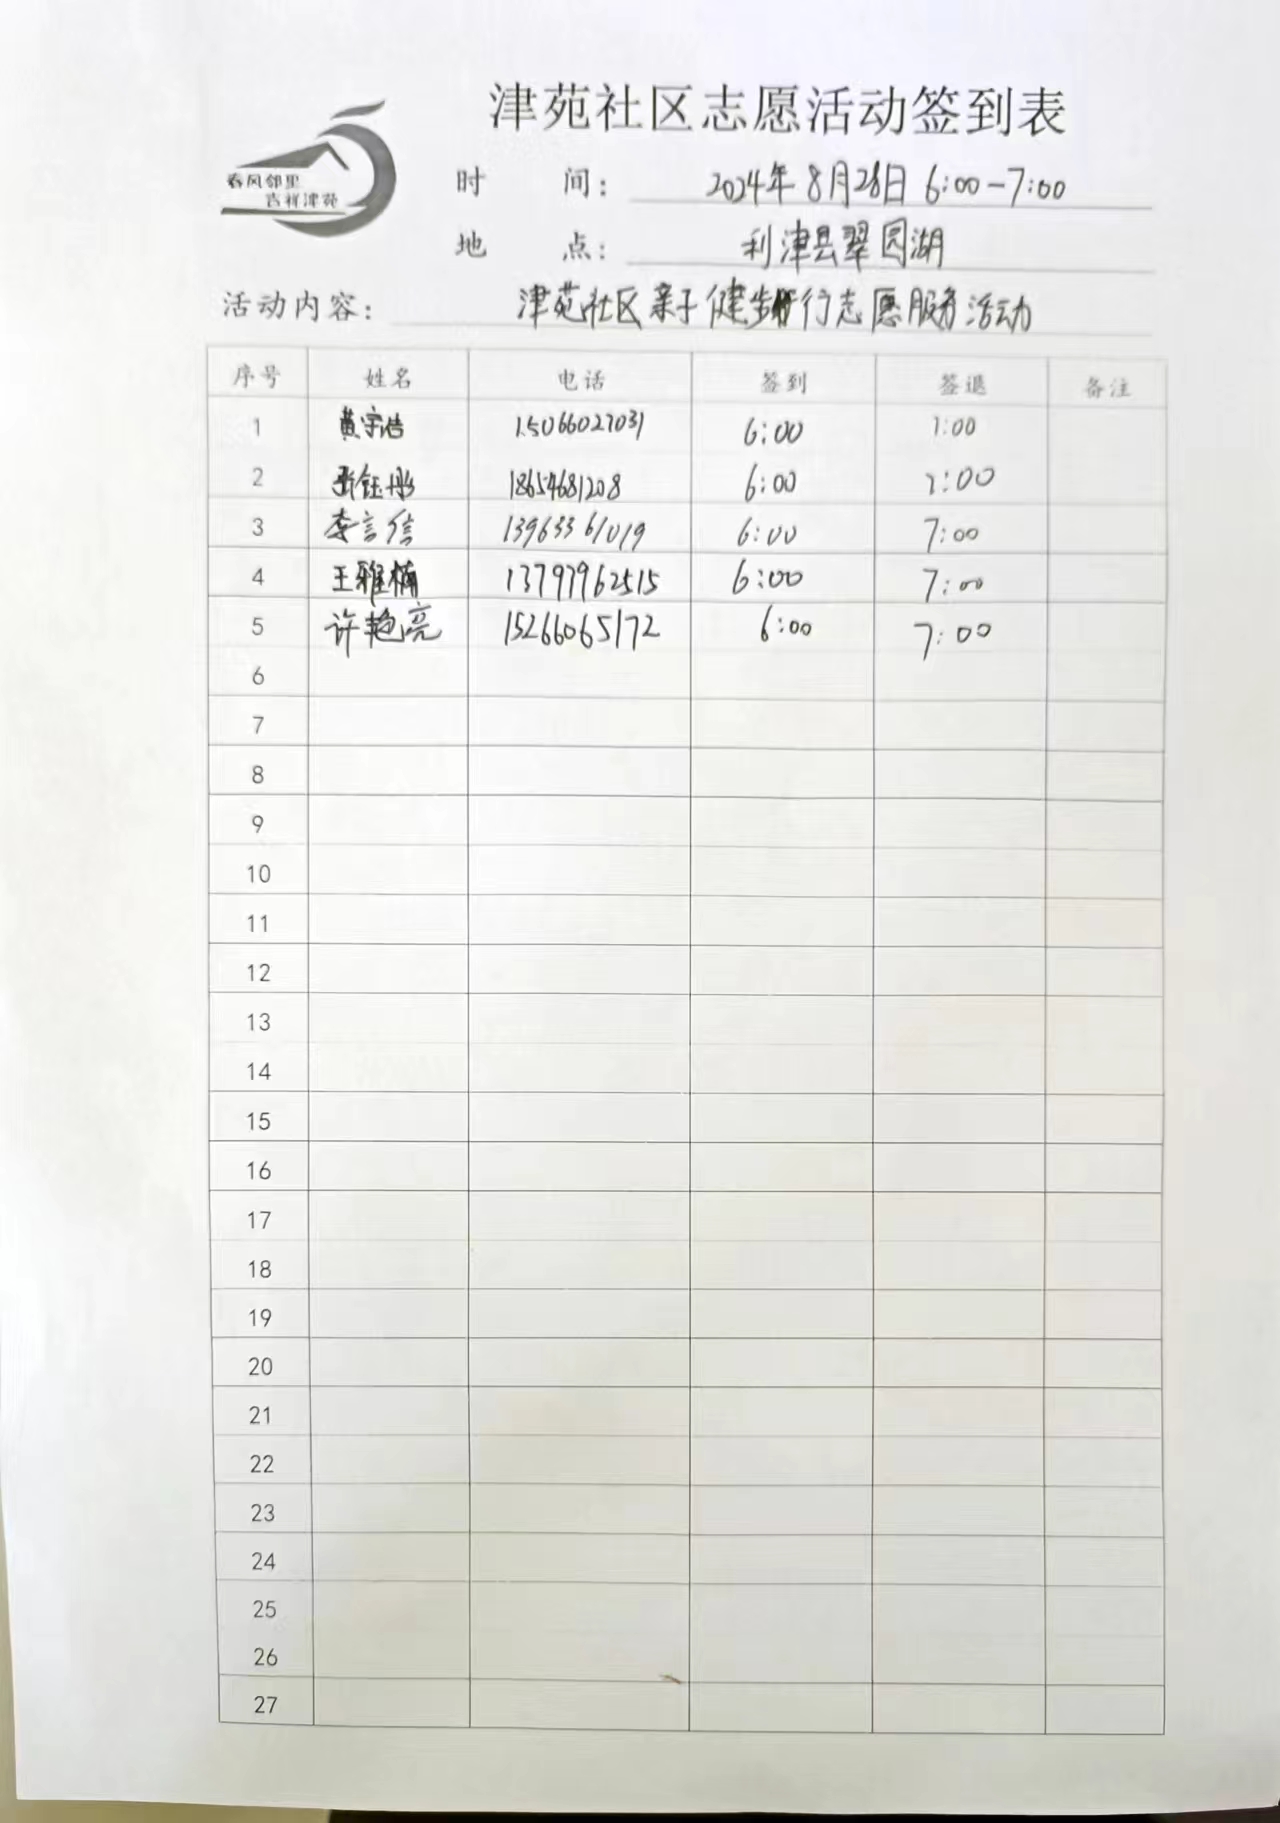 津苑社区志愿活动签到表
春风邻里
吉祥津苑
时 间： 2024年8月28日 6:00-7:00
地 点： 利津县翠园湖
活动内容： 津苑社区亲子健步行志愿服务活动
序号 姓名 电话 签到 签退 备注
1 黄宇浩 15066027031 6:00 7:00
2 张钰彤 18654681208 6:00 7:00
3 李言信 13963361019 6:00 7:00
4 王雅楠 13797962515 6:00 7:00
5 许艳亮 15266065172 6:00 7:00
6
7
8
9
10
11
12
13
14
15
16
17
18
19
20
21
22
23
24
25
26
27